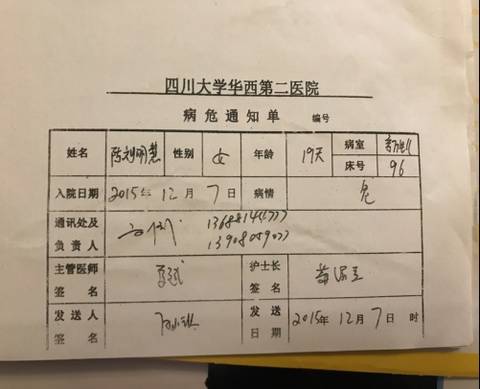 四川大学华西第二医院
病危通知单 编号
姓名 陈刘明慧 性别 女 年龄 19天 病室 床号 96
入院日期 2015年 12月 7日 病情 危
通讯处及
负责人
主管医师 护士长
签名 签名
发送人 发送
签名 日期 2015年 12月 7日 时